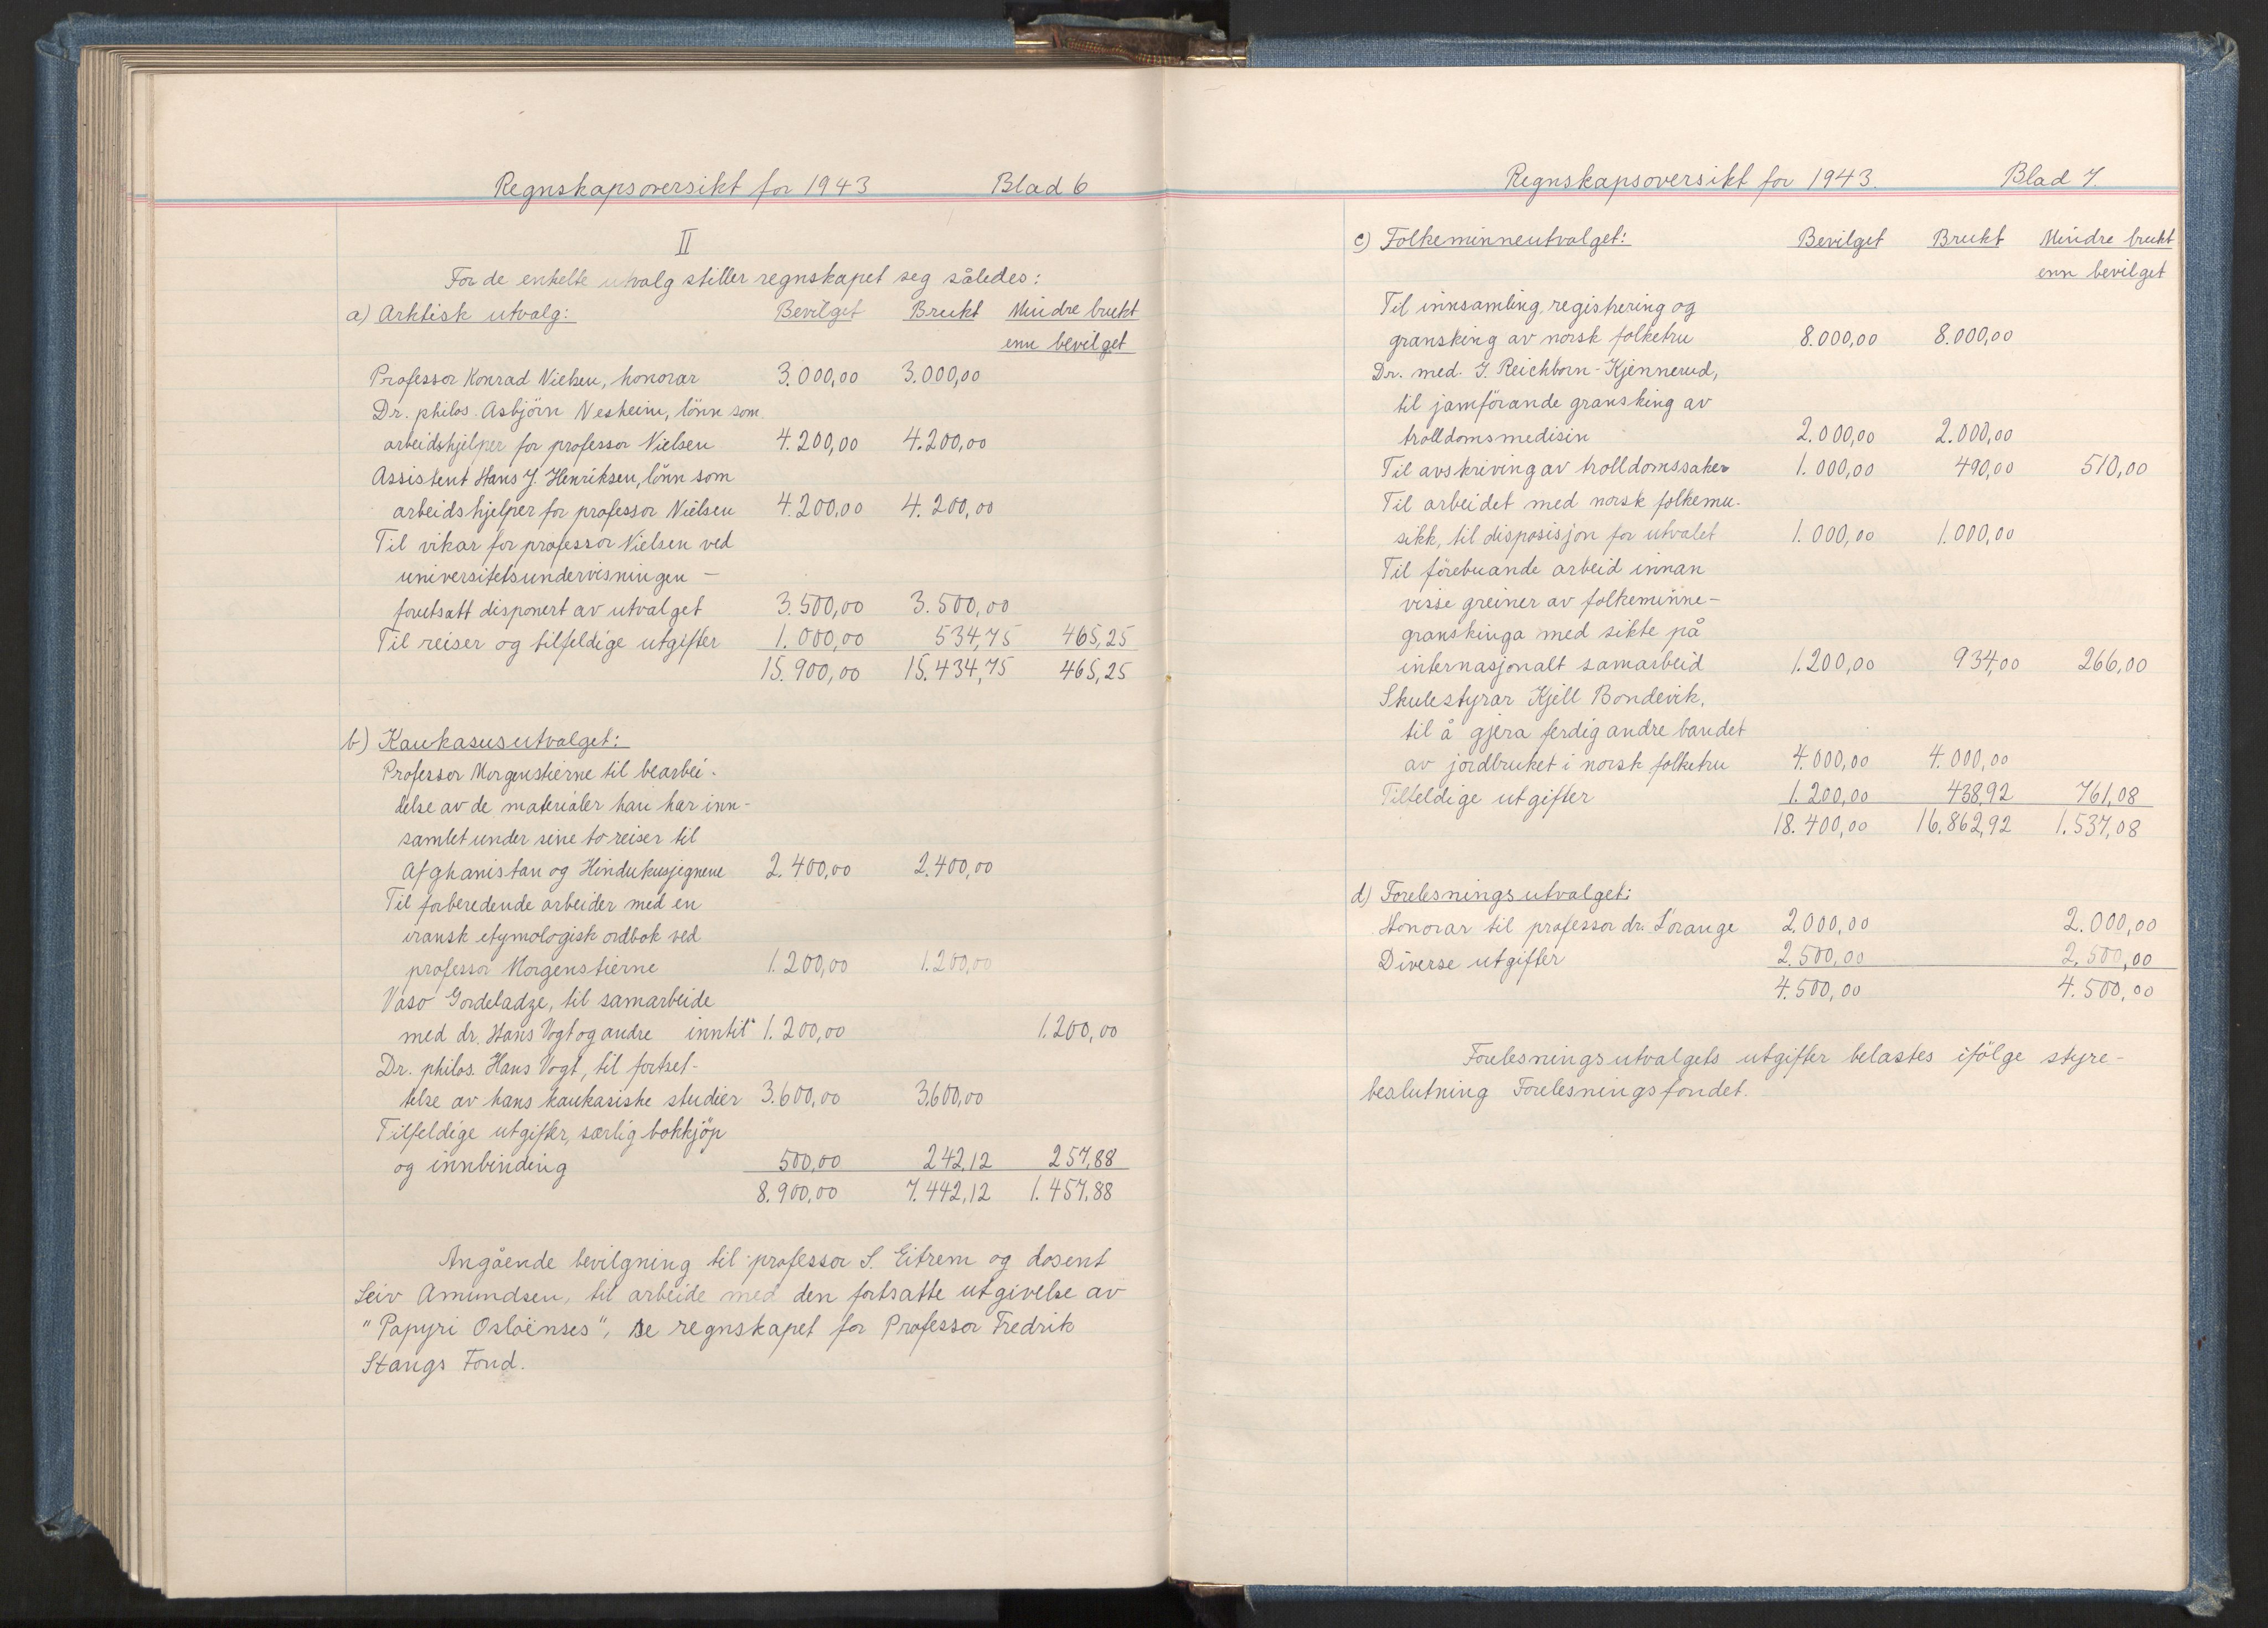 Regnskapsoversikt for 1943 Blad 6
II
For de enkelte utvalg stiller regnskapet seg således:
a) Arktisk utvalg: Bevilget Brukt Mindre brukt
enn bevilget
Professor Konrad Nielsen, honorar 3.000,00 3.000,00
Dr. philos. Asbjörn Nesheim, lönn som
arbeidshjelper for professor Nielsen 4.200,00 4.200,00
Assistent Hans J. Henriksen, lönn som
arbeidshjelper for professor Nielsen 4.200,00 4.200,00
Til vikar for professor Nielsen ved
universitetsundervisningen –
forutsatt disponert av utvalget 3.500,00 3.500,00
Til reiser og tilfeldige utgifter 1.000,00 534,75 465,25
15.900,00 15.434,75 465,25
b) Kaukasusutvalget:
Professor Morgenstierne til bearbei-
delse av de materialer han har inn-
samlet under sine to reiser til
Afghanistan og Hindukusjegnene 2.400,00 2.400,00
Til forberedende arbeider med en
iransk etymologisk ordbok ved
professor Morgenstierne 1.200,00 1.200,00
Vaso Gordeladze, til samarbeide
med dr. Hans Vogt og andre inntil 1.200,00 1.200,00
Dr. philos. Hans Vogt, til fortset-
telse av hans kaukasiske studier 3.600,00 3.600,00
Tilfeldige utgifter, særlig bokkjöp
og innbinding 500,00 242,12 257,88
8.900,00 7.442,12 1.457,88
Angående bevilgning til professor S. Eitrem og dosent
Leiv Amundsen, til arbeide med den fortsatte utgivelse av
"Papyri Osloënses", se regnskapet for Professor Fredrik
Stangs Fond.
Regnskapsoversikt for 1943. Blad 7.
c) Folkeminneutvalget: Bevilget Brukt Mindre brukt
enn bevilget
Til innsamling, registrering og
gransking av norsk folketru 8.000,00 8.000,00
Dr. med. I. Reichborn-Kjennerud,
til jamförande gransking av
trolldomsmedisin 2.000,00 2.000,00
Til avskriving av trolldomssaker 1.000,00 490,00 510,00
Til arbeidet med norsk folkemu-
sikk, til disposisjon for utvalet 1.000,00 1.000,00
Til förebuande arbeid innan
visse greiner av folkeminne-
granskinga med sikte på
internasjonalt samarbeid 1.200,00 934,00 266,00
Skulestyrar Kjell Bondevik,
til å gjera ferdig andre bandet
av jordbruket i norsk folketru 4.000,00 4.000,00
Tilfeldige utgifter 1.200,00 438,92 761,08
18.400,00 16.862,92 1.537,08
d) Forelesningsutvalget:
Honorar til professor dr. L'orange 2.000,00 2.000,00
Diverse utgifter 2.500,00 2.500,00
4.500,00 4.500,00
Forelesningsutvalgets utgifter belastes ifölge styre-
beslutning Forelesningsfondet.